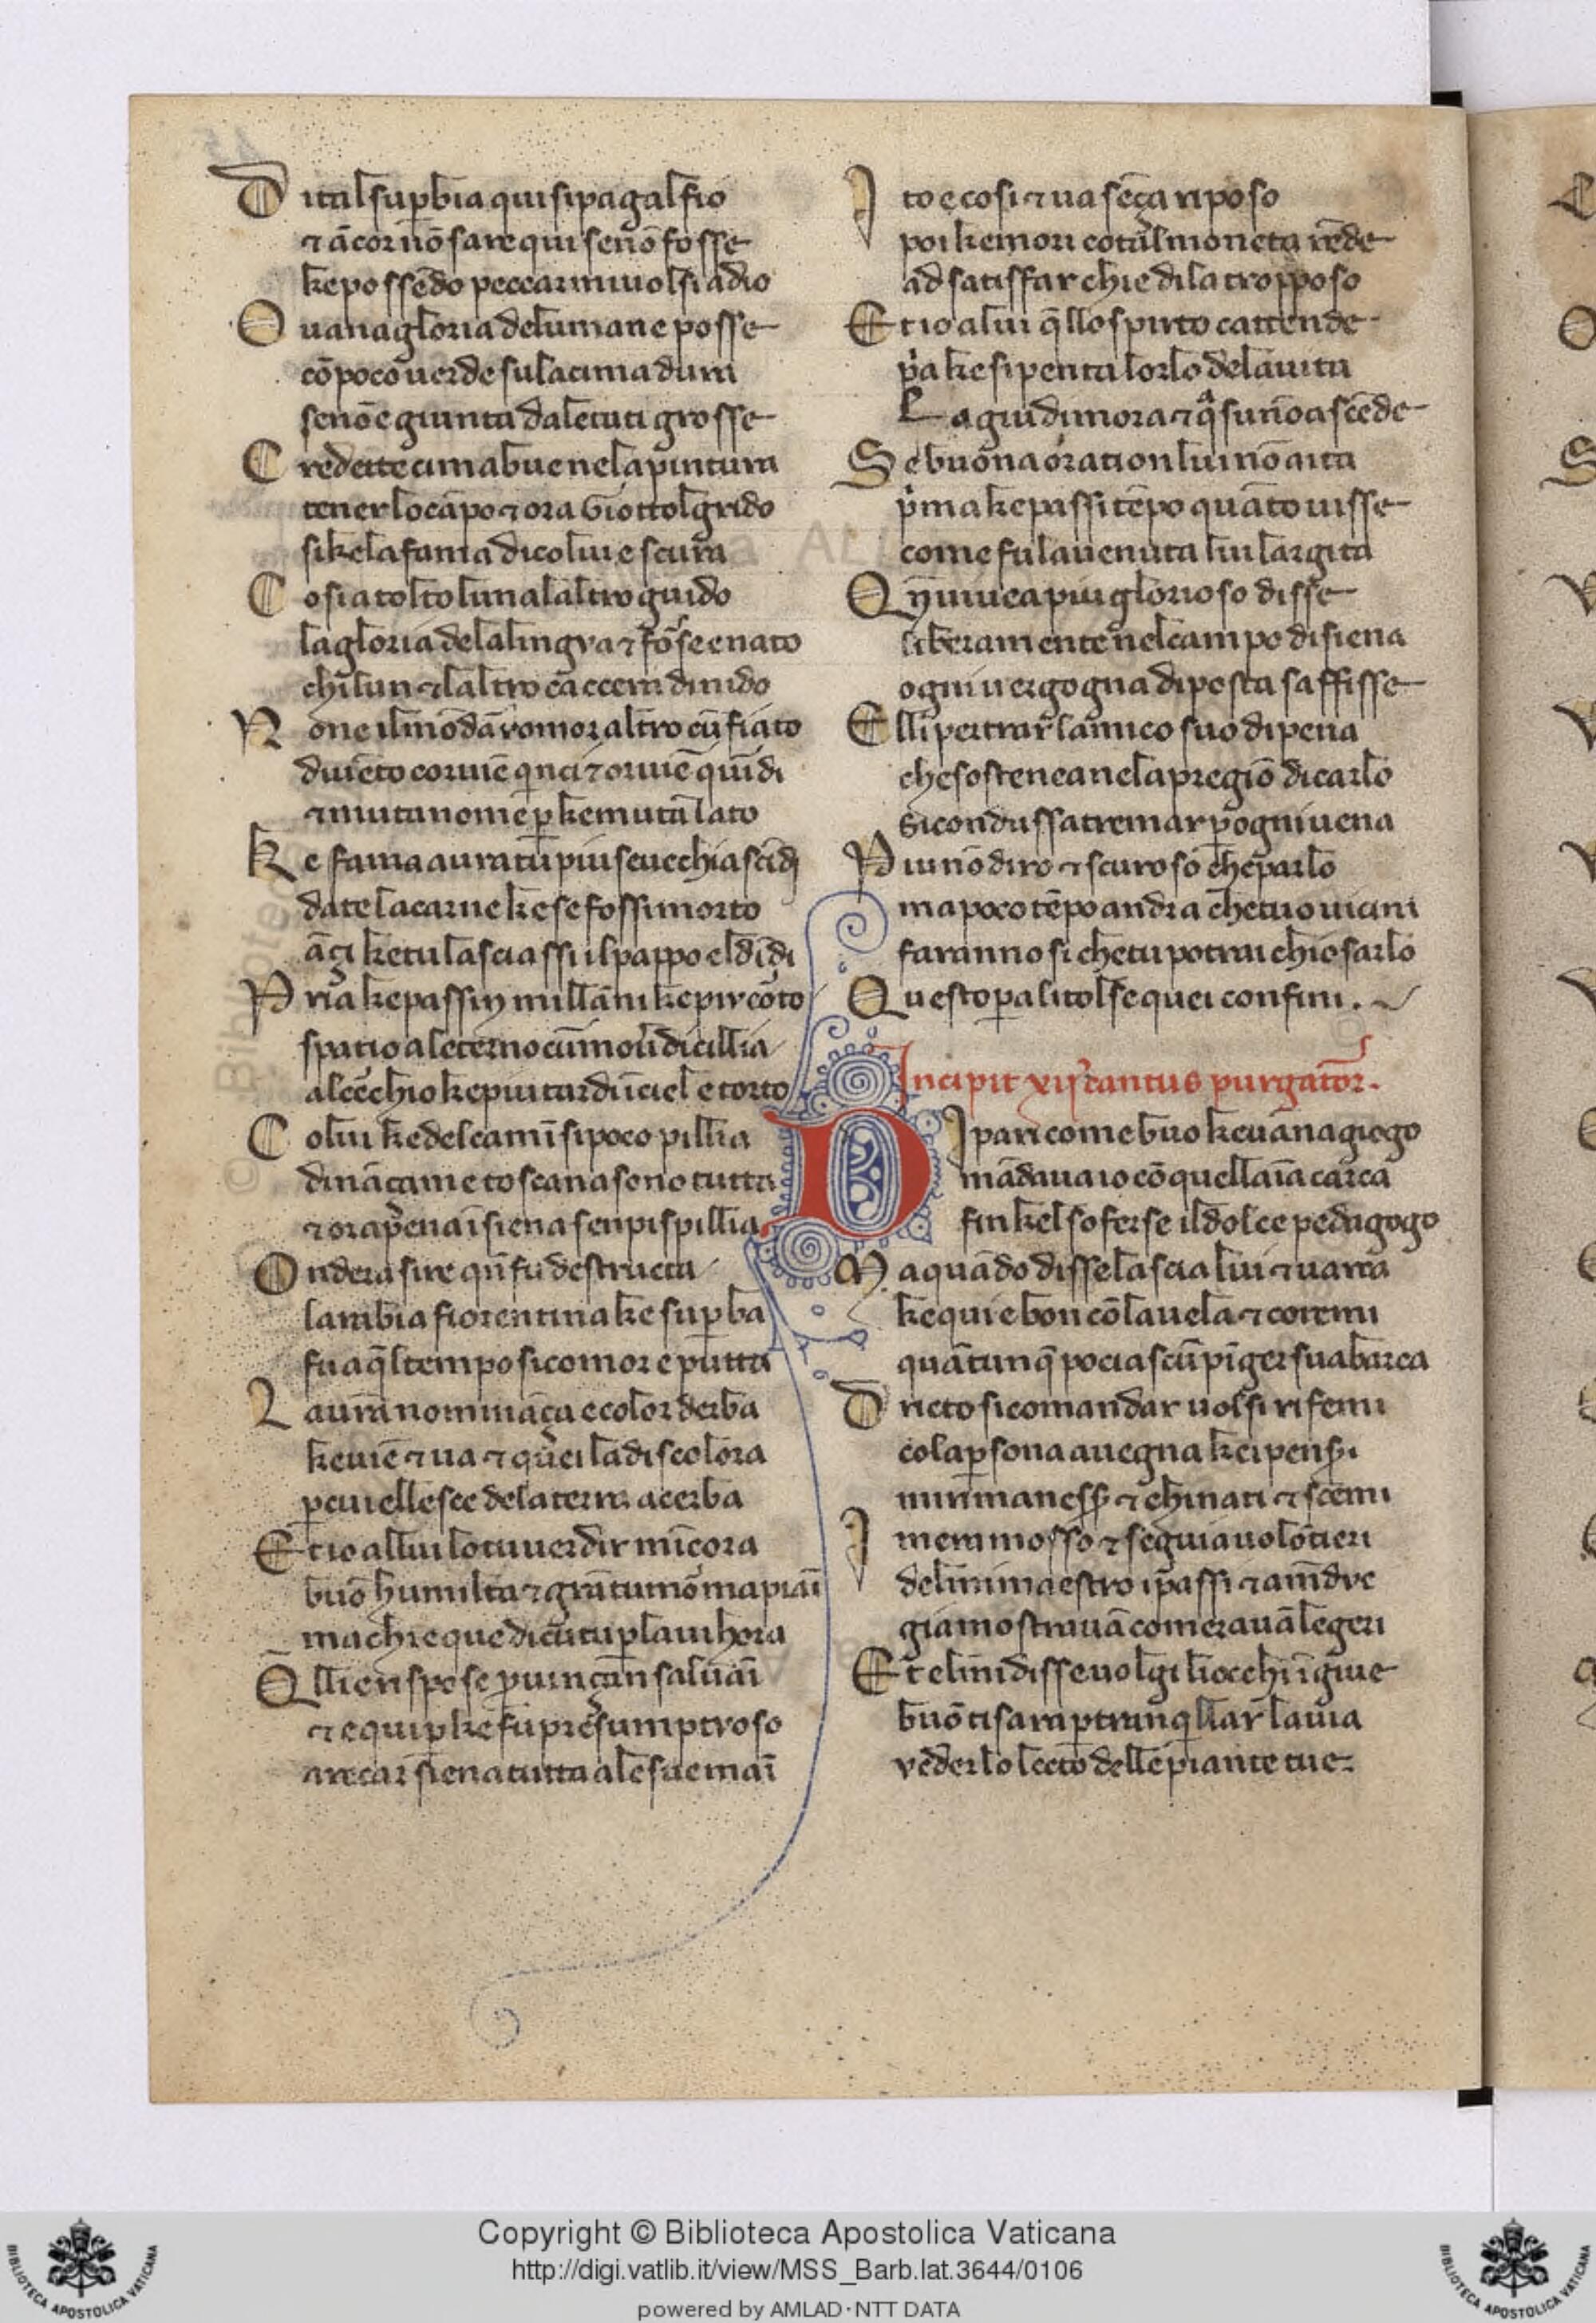 D italsup̄bia qui si paga l fio
⁊ ācor nō sare qui se nō fosse
ke possēdo peccar mi uolsi a dio
O uana gloria del umane posse
cō poco uerde su la cima dura
se nō e giunta da l etati grosse
C redette cimabue ne la pintura
tener lo cāpo ⁊ ora Giotto l grido
si ke la fama di colui e scura
C osi a tolto l una l altro guido
la gloria de la lingva ⁊ forse e nato
chi l un ⁊ l altro caccera di nido
N on e il mōdā romor altro c ū fiato
di uēto cor uiē q̄nci ⁊ or uiē quīdi
⁊ muta nome p̄ ke muta lato
K e fama aura tu piu se uecchia scīdi
da te la carne ke se fossi morto
āçi ke tu lasciassi il pappo e l dīdi
P ria ke passin mill āni k e piv corto
spatio a l eterno c ū mouer di cillia
al cerchio ke piu tardi ī ciel e torto
C olui ke del camī si poco pillia
dināçi a me toscana sono tutta
⁊ ora pena ī siena sen pispillia
O nd era sire qn̄ fu destructa
la rabbia fiorentina ke sup̄ba
fu a q̄l tempo si com or e putta
L a ura nomināça e color d erba
ke uiē ⁊ ua ⁊ quei la discolora
p̄ cui ell esce de la terra acerba
E t io a llui lo tuo uer dir m īcora
buō humilta ⁊ grā tumor m apiāi
ma chi e que di cui tu p̄laui hora
Q̄ lli e rispose p̄uinçan saluāi
⁊ e qui p̄ ke fu presumptvoso
a recar siena tutta a le sue māi
I to e cosi ⁊ ua sēça riposo
poi ke mori cotal moneta rēde
ad satisffar chi e di la tropp oso
E t io a lui q̄llo spirto c attende
p̄a ke si penta l orlo de la uita
La giu dimora ⁊ q̄ su nō ascēde
S e buona oration lui nō aita
p̄ma ke passi tēpo quāto uisse
come fu la uenuta lui largita
Q n̄ uiuea piu glorioso disse
liberamente nel campo di siena
ogni uergogna diposta s affisse
E lli per trar l amico suo di pena
che sostenea ne la pregiō di carlo
si condussa tremar p̄ ogni uena
P iu nō diro ⁊ scuro so che parlo
ma poco tēpo andra che tuo uicini
faranno si che tu potrai chiosarlo
Q uest op̄a li tolse quei confini.
Incipit xiis cantus purgator.
D I pari come buo ke uāna giogo
mādaua io cō quell aīa carca
fin kel soferse il dolce pedagogo
M a quādo disse lascia lui ⁊ uarca
ke qui e bon cō la uela ⁊ co remi
quātunq̄ po ciascū pīger sua barca
D ricto si com andar uolsi rifemi
co la p̄sona auegna ke i pensṙi
mi rimanessr̄ ⁊ chinati ⁊ scemi
I m era mosso ⁊ seguia uolōtieri
del mi maestro i passi ⁊ amdve
gia mostrauā com erauā legeri
E t el mi disse uolgi li occhi ī giue
buō ti sara p̄ tranq̄llar la uia
veder lo lecto delle piante tue
Copyright © Biblioteca Apostolica Vaticana
http://digi.vatlib.it/view/MSS_Barb.lat.3644/0106
powered by AMLAD·NTT DATA